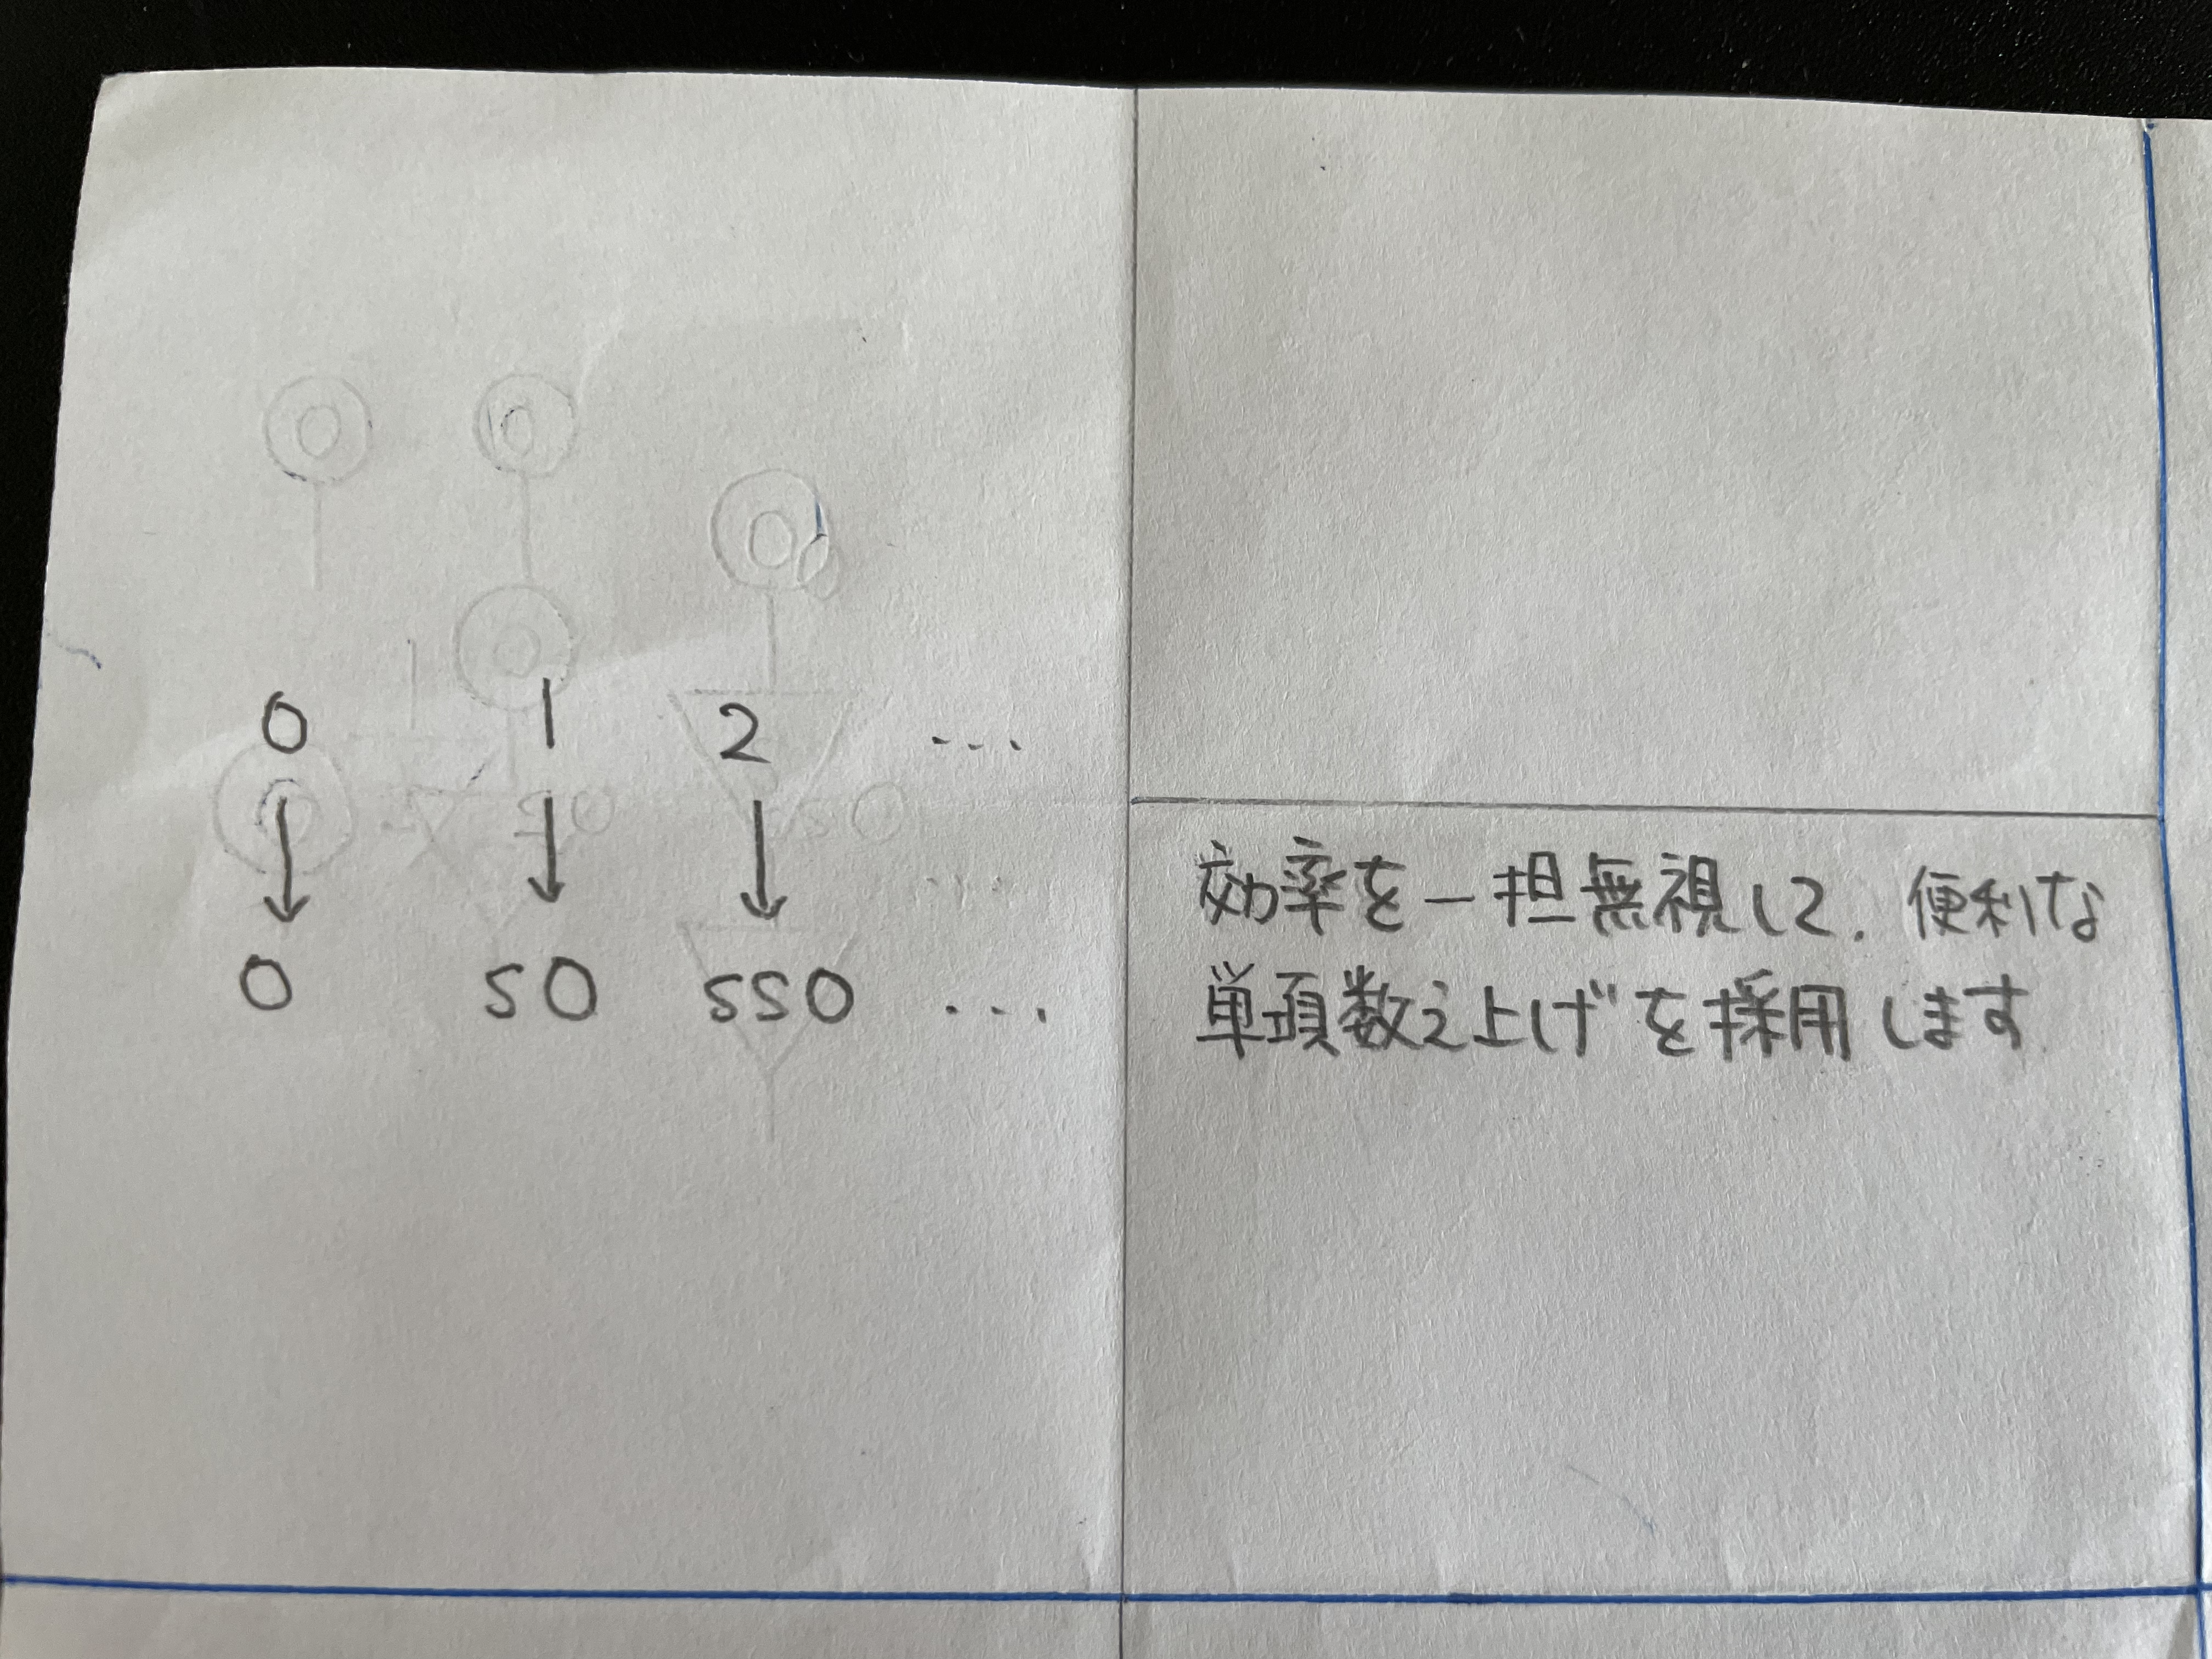 0 1 2 ...
↓ ↓ ↓
0 S0 SS0 ...
効率を一担無視して、便利な
単項数え上げを採用します